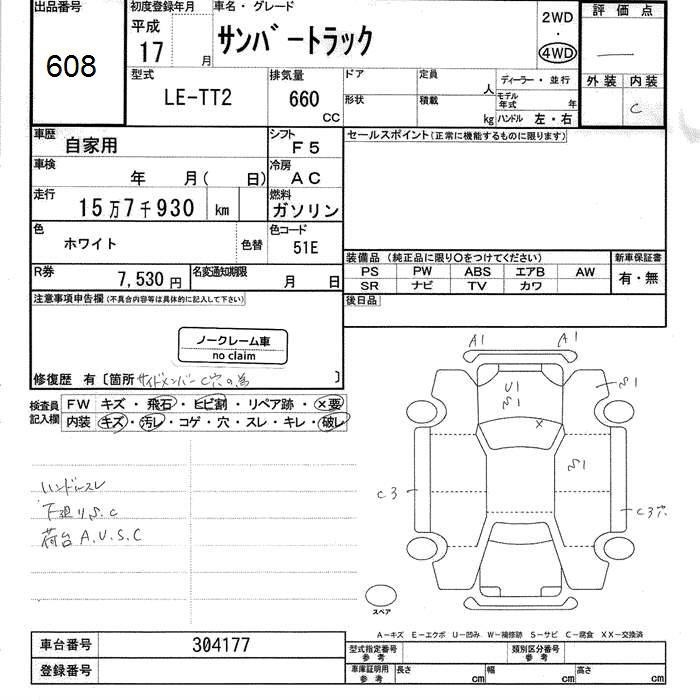 出品番号 初度登録年月 車名・グレード 評価点
608
平成 17 月 サンバートラック 2WD ・ 4WD
―
型式 排気量 ドア 定員 人 ディーラー・並行 外装 内装
LE-TT2 660 CC 形状 積載 kg モデル年式 年 C
ハンドル 左・右
車歴 自家用 シフト F5 セールスポイント(正常に機能するものに限ります)
車検 年 月( 日) 冷房 AC
走行 15万7千930 km 燃料 ガソリン
色 ホワイト 色替 色コード 51E
装備品 (純正品に限り〇をつけてください) 新車保証書
PS PW ABS エアB AW 有・無
SR ナビ TV カワ
R券 7,530円 名変通知期限 月 日
注意事項申告欄(不具合内容等は具体的に記入して下さい) 後日品
ノークレーム車
no claim
修復歴 有〔箇所 サイドメンバーC穴の為 〕
検査員記入欄 FW キズ・飛石・ヒビ割・リペア跡・×要
内装 キズ・汚レ・コゲ・穴・スレ・キレ・破レ
A1 A1
U1
S1
S1
×
S1
C3
C3穴
ハンドルスレ
下廻りS.C
荷台A.U.S.C
スペア
A-キズ E-エクボ U-凹み W-補修跡 S-サビ C-腐食 XX-交換済
車台番号 304177 型式指定番号 参考 類別区分番号 参考
登録番号 車庫証明用 参考 長さ cm 幅 cm 高さ cm